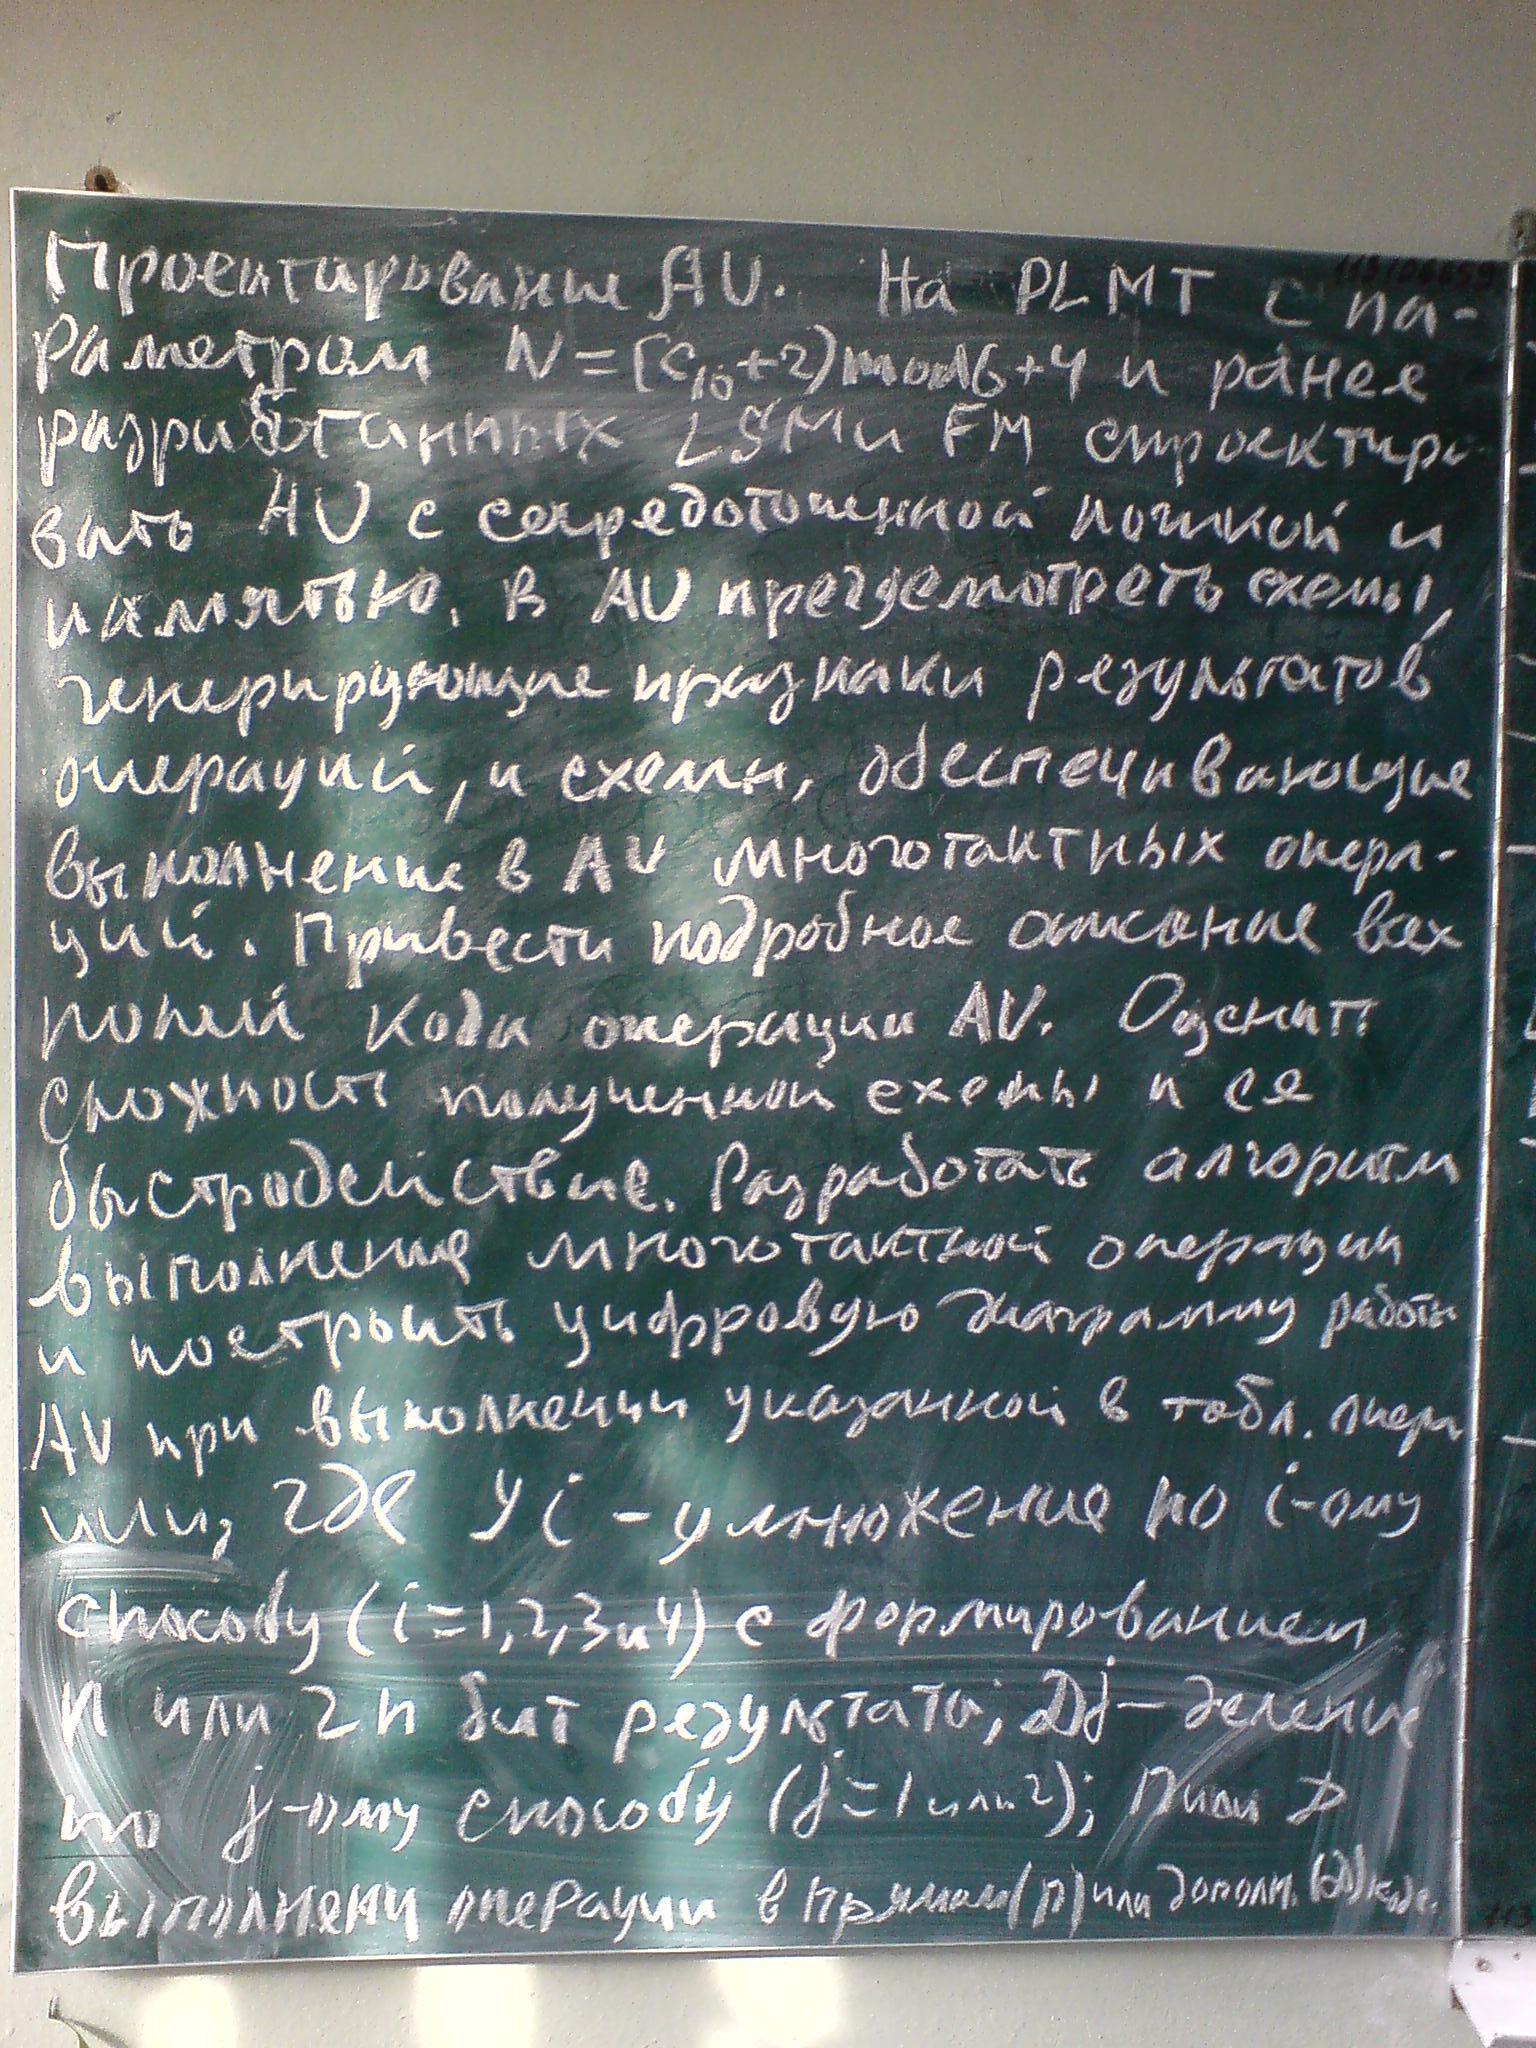 Проектирование AU. На PLMT с па-
раметром N=[C₁₀+2)mod6+4 и ранее
разработанных LSM и FM спроектиро
вать AU с сосредоточенной логикой и
памятью. В AU предусмотреть схемы,
генерирующие признаки результатов
операций, и схемы, обеспечивающие
выполнение в AU многотактных опера-
ций. Привести подробное описание всех
полей кода операции AU. Оценить
сложность полученной схемы и ее
быстродействие. Разработать алгоритм
выполнения многотактной операции
и построить цифровую диаграмму работы
AU при выполнении указанной в табл. опера
ции, где Уi - умножение по i-ому
способу (i=1,2,3и4) с формированием
n или 2n бит результата; Дj - деление
по j-ому способу (j=1или2); П или Д
выполнени операции в прямом(П) или дополн. (Д)коде.